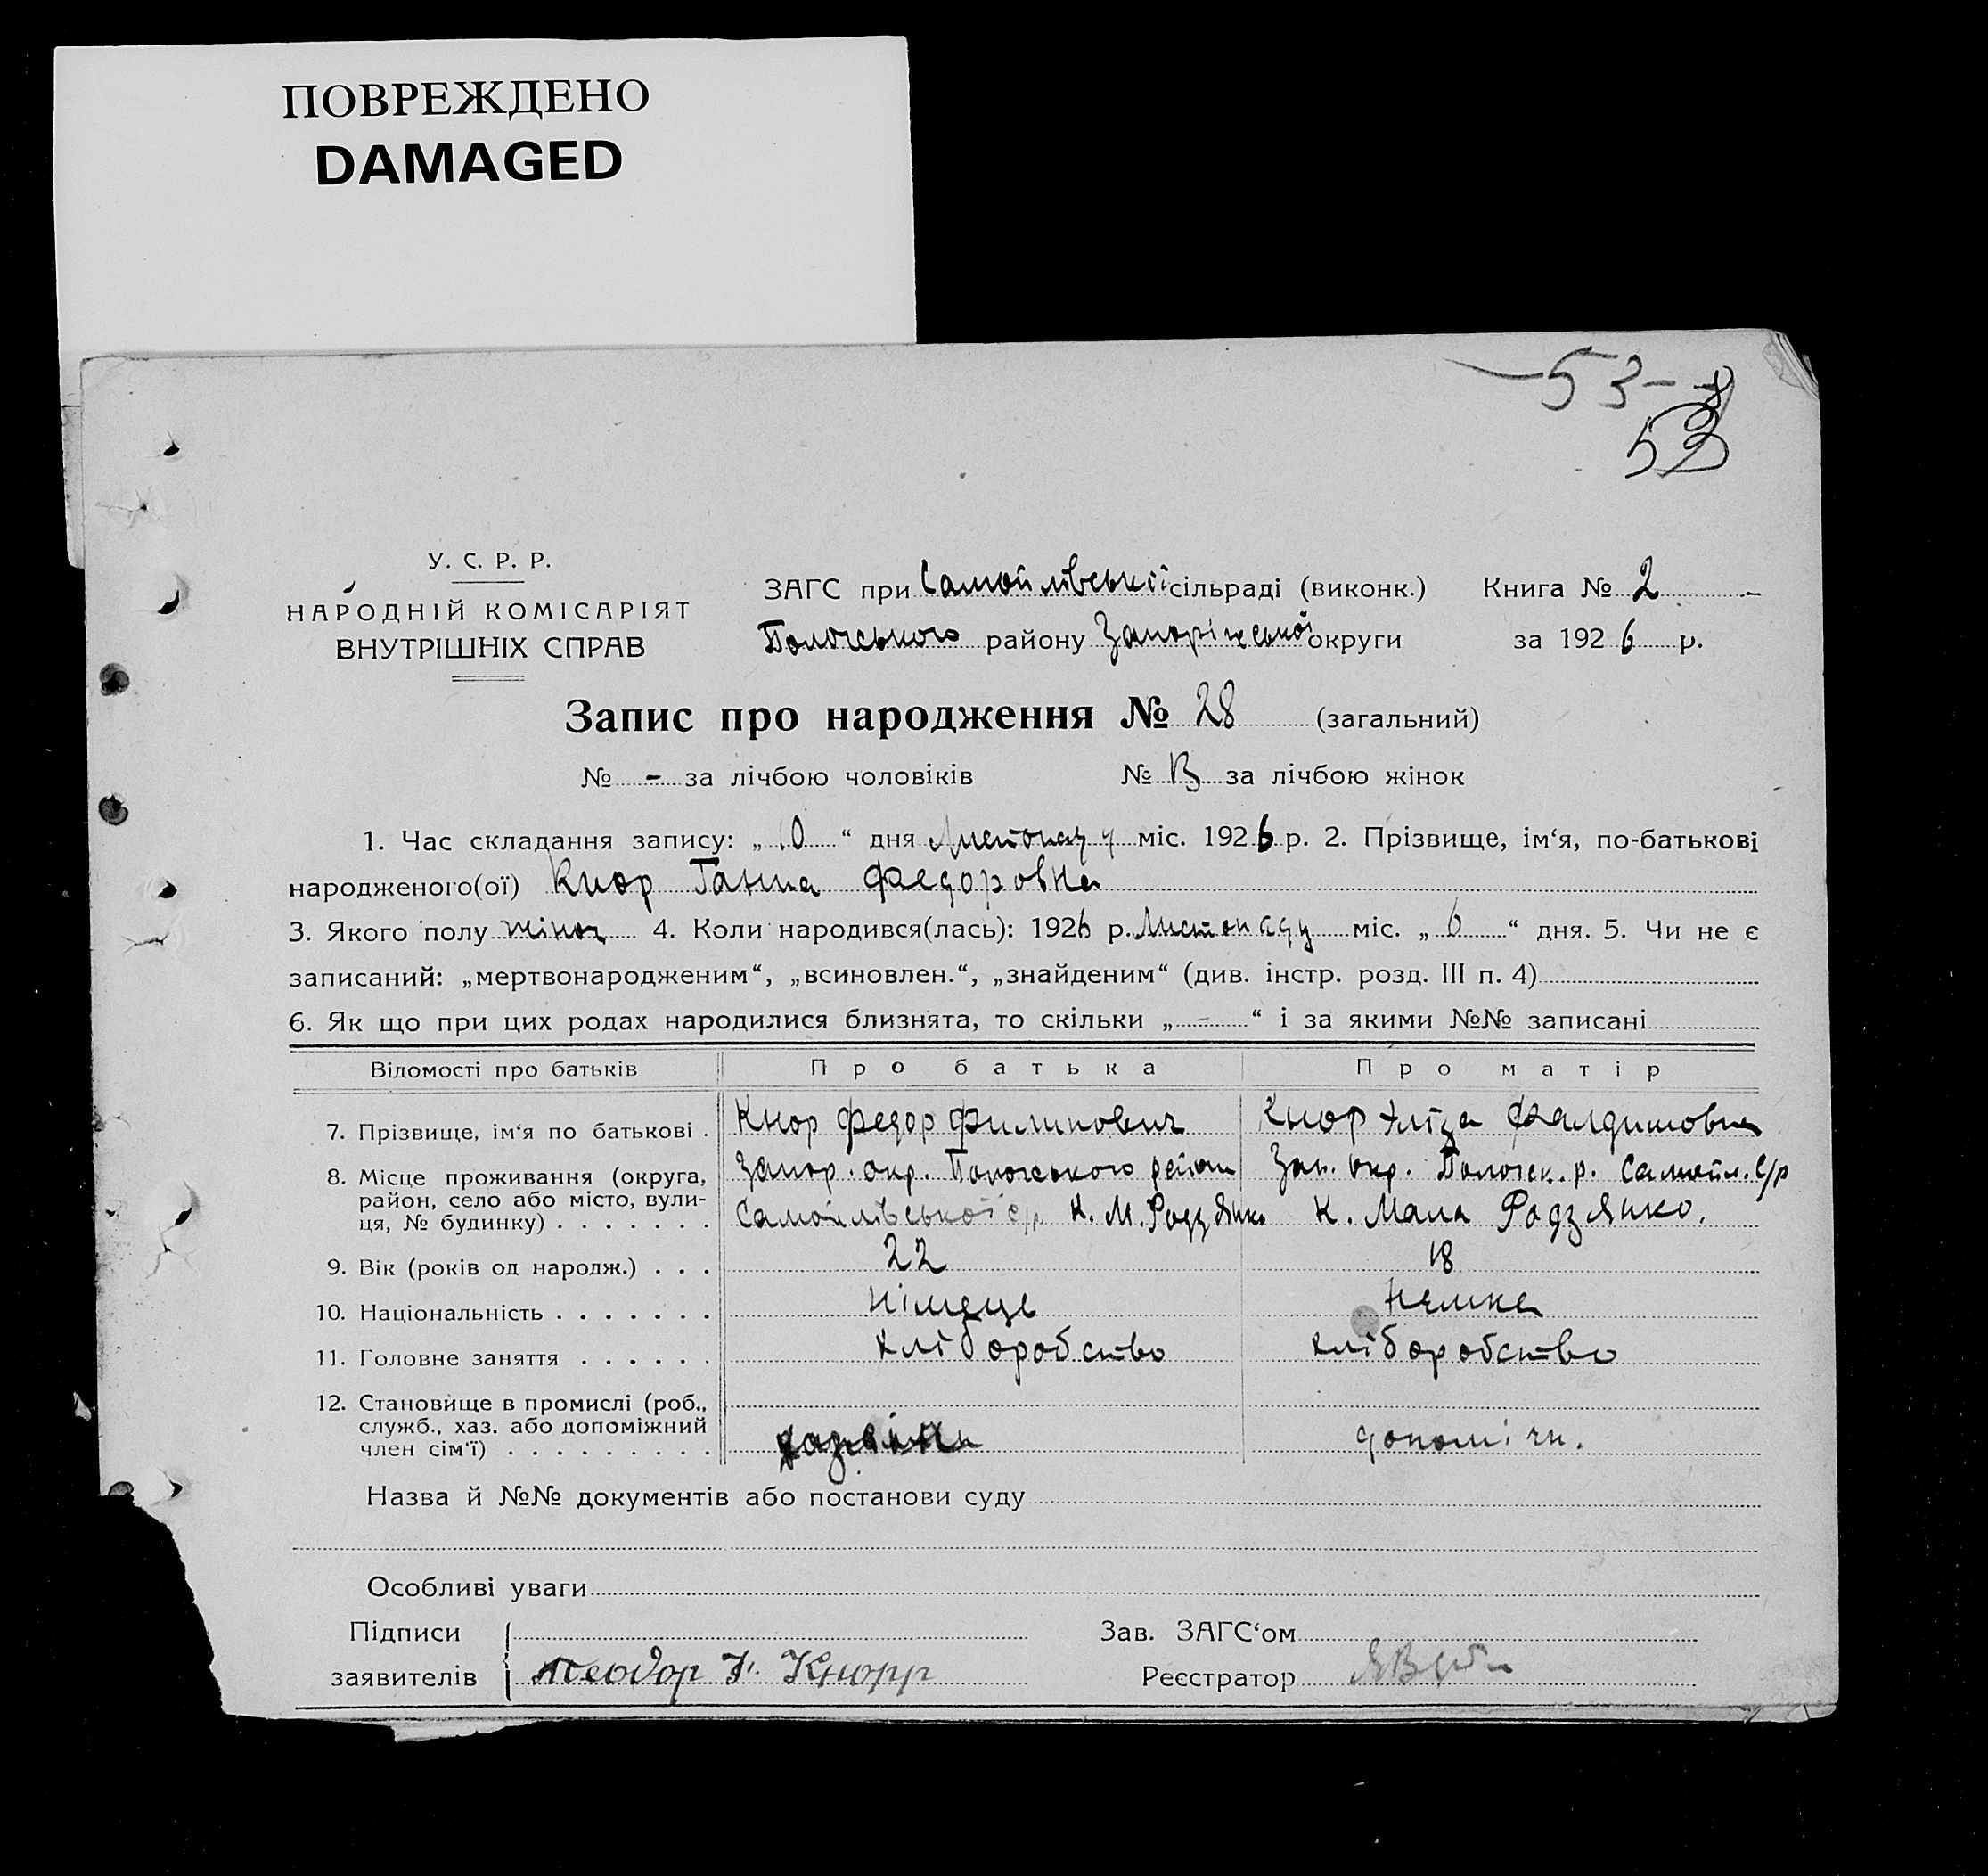 ПОВРЕЖДЕНО
DAMAGED
—53—
53
У. С. Р. Р.
НАРОДНІЙ КОМІСАРІЯТ
ВНУТРІШНІХ СПРАВ
ЗАГС при Самойлівській сільраді (виконк.) Книга № 2
Пологського району Запоріжської округи за 1926 р.
Запис про народження № 28 (загальний)
№ - за лічбою чоловіків № 13 за лічбою жінок
1. Час складання запису: „10“ дня Листопаду міс. 1926 р. 2. Прізвище, ім‘я, по-батькові
народженого(ої) Кнор Ганна Федоровна
3. Якого полу жіноч 4. Коли народився(лась): 1926 р. Листопаду міс. „6“ дня. 5. Чи не є
записаний: „мертвонародженим“, „всиновлен.“, „знайденим“ (див. інстр. розд. III п. 4)
6. Як що при цих родах народилися близнята, то скільки „-“ і за якими №№ записані
Відомості про батьків Про батька Про матір
7. Прізвище, ім‘я по батькові . Кнор Федор Филипович Кнор Еліза
8. Місце проживання (округа, Запор. окр. Пологського району Зап. окр. Пологск. р. Самойл. с/р
район, село або місто, вули-
ця, № будинку) . . . . . . . Самойлівської с/р К. М. Родзянко К. Мала Родзянко.
9. Вік (років од народж.) . . . 22 18
10. Національність . . . . . . . німець немка
11. Головне заняття . . . . . . хліборобство хліборобство
12. Становище в промислі (роб.,
служб., хаз. або допоміжний
член сім‘ї) . . . . . . . . . допоміжн.
Назва й №№ документів або постанови суду
Особливі уваги
Підписи Зав. ЗАГС‘ом
заявителів Теодор Ф. Кнорр Реєстратор